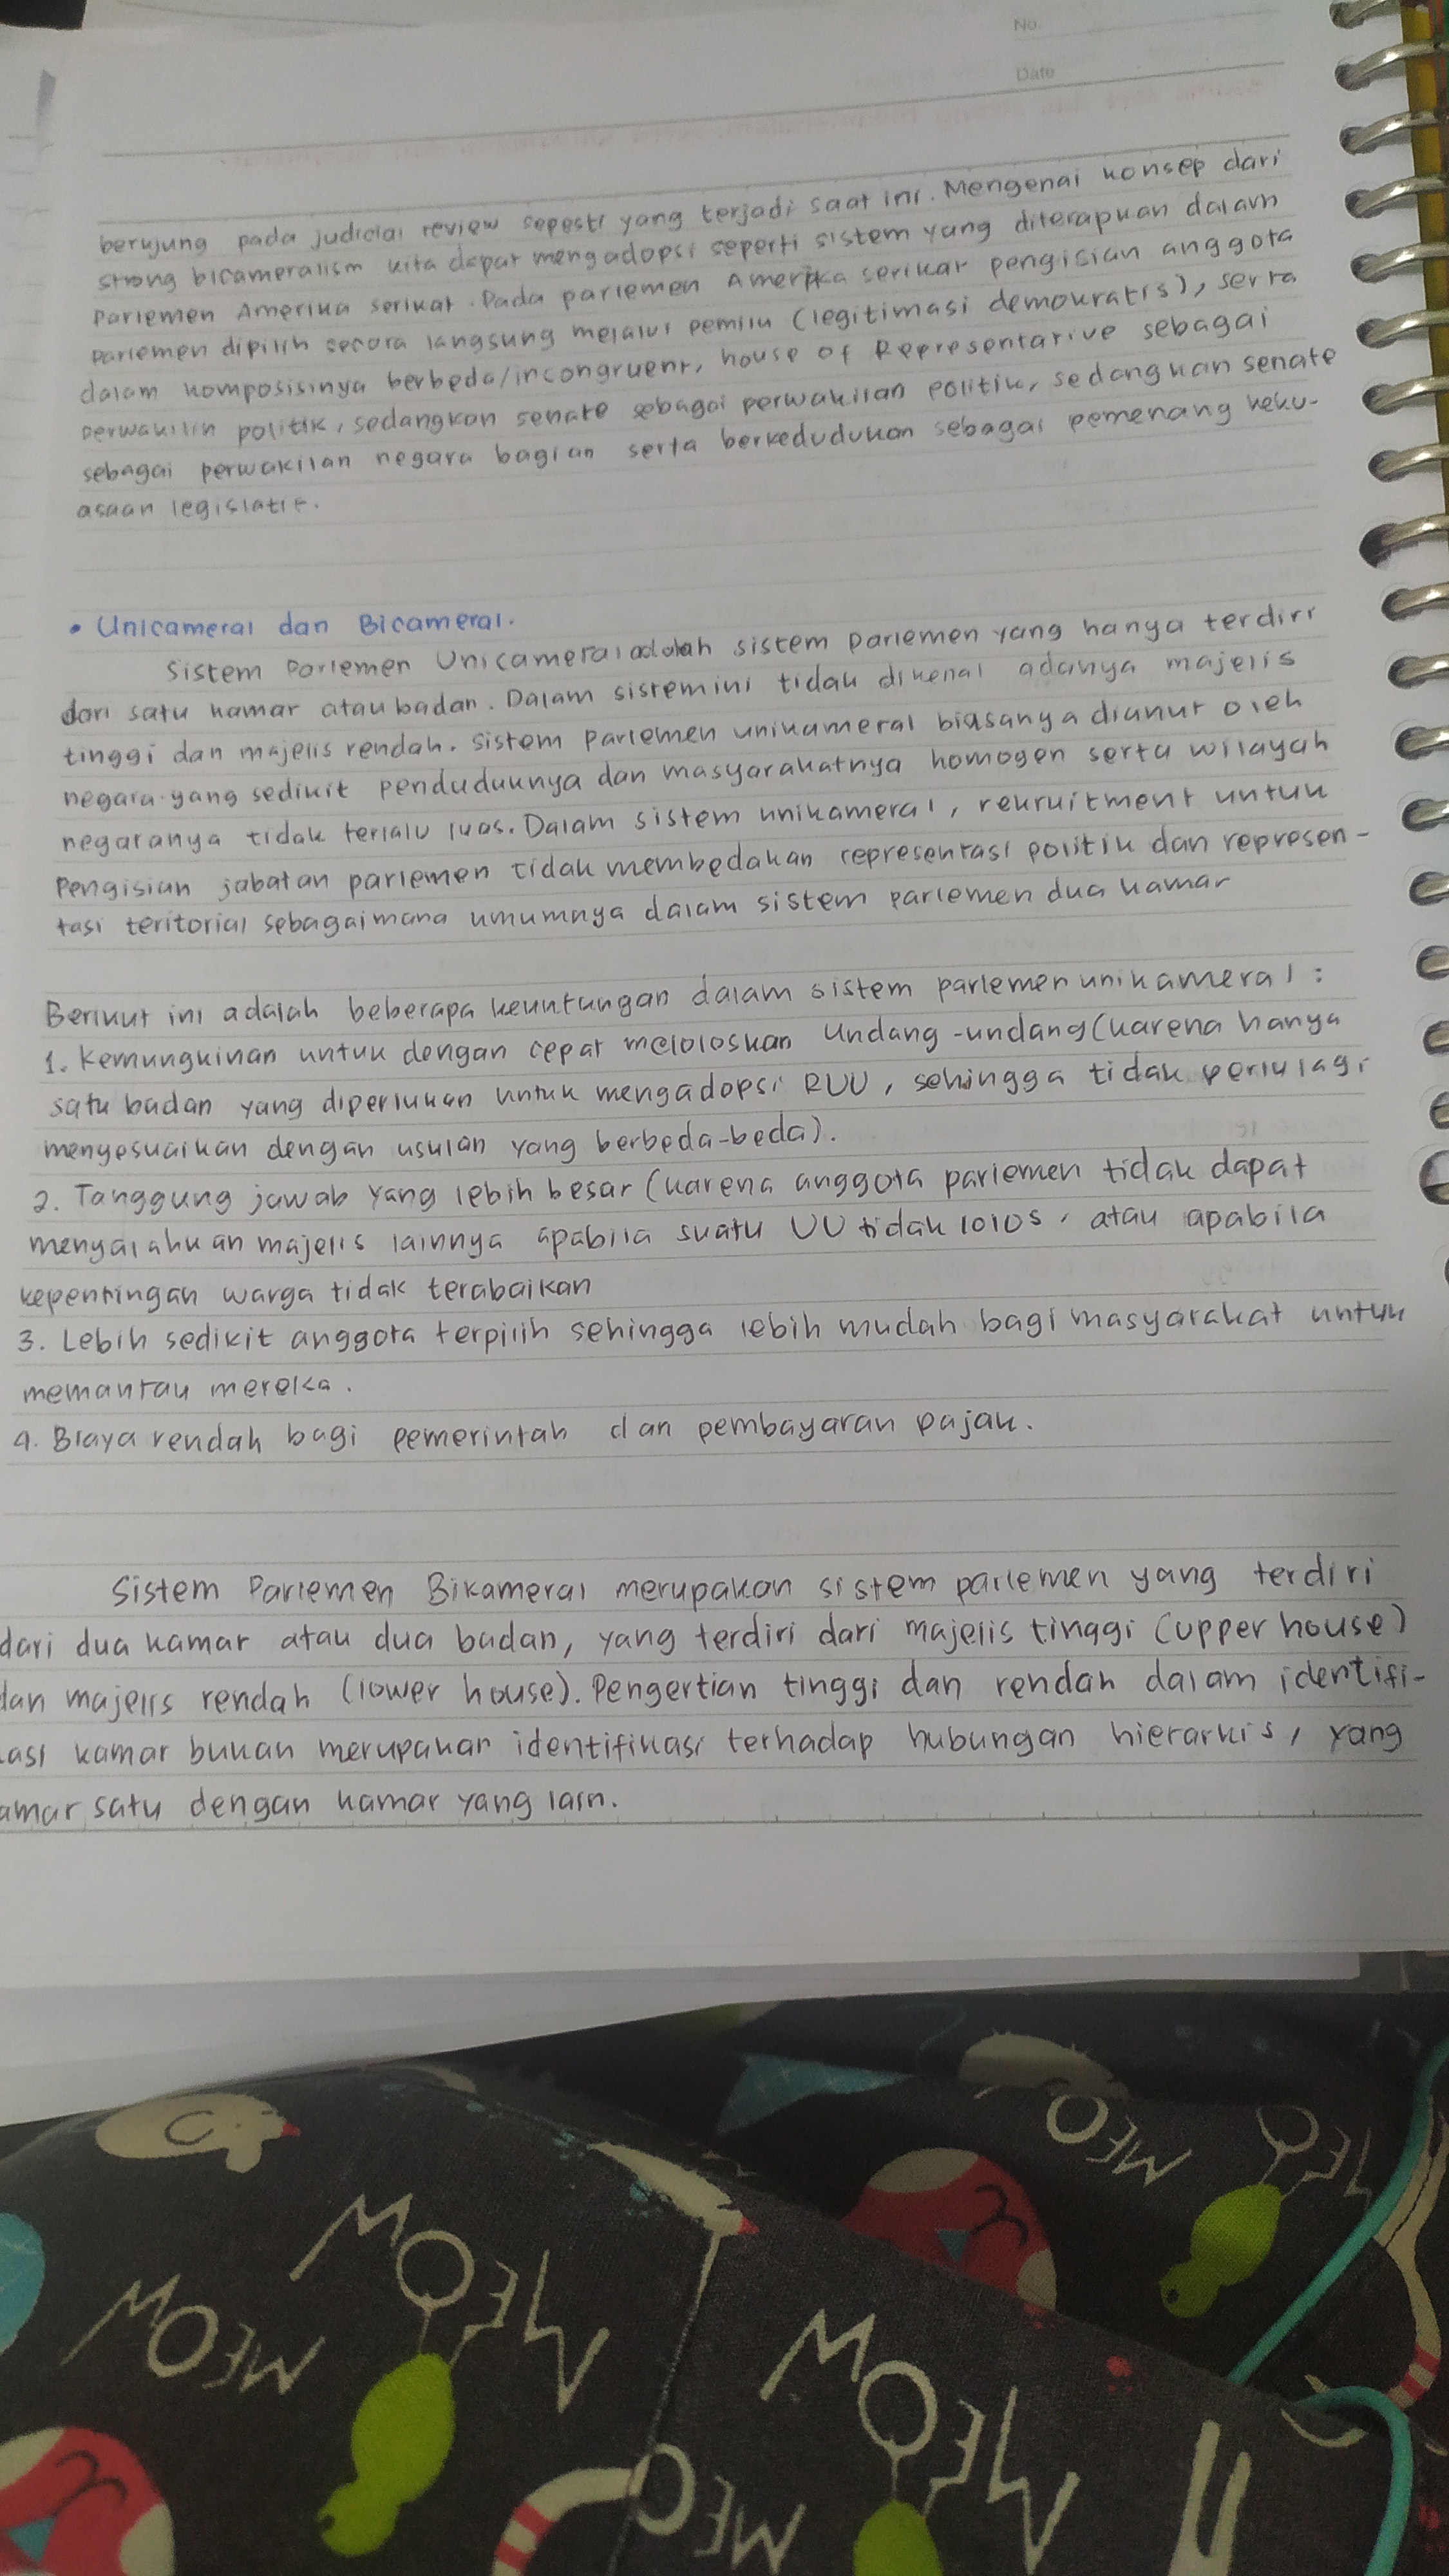 No.
Date
berujung pada judicial review seperti yang terjadi saat ini. Mengenai konsep dari
strong bicameralism kita dapat mengadopsi seperti sistem yang diterapkan dalam
parlemen Amerika serikat. Pada parlemen Amerika serikat pengisian anggota
parlemen dipilih secara langsung melalui pemilu (legitimasi demokratis), serta
dalam komposisinya berbeda/incongruent, house of Representative sebagai
perwakilin politik, sedangkan senate sebagai perwakilan politik, sedangkan senate
sebagai perwakilan negara bagian serta berkedudukan sebagai pemenang keku-
asaan legislatif.
• Unicameral dan Bicameral.
Sistem Parlemen Unicameral adalah sistem parlemen yang hanya terdiri
dari satu kamar atau badan. Dalam sistem ini tidak dikenal adanya majelis
tinggi dan majelis rendah. Sistem parlemen unikameral biasanya dianut oleh
negara yang sedikit penduduknya dan masyarakatnya homogen serta wilayah
negaranya tidak terlalu luas. Dalam sistem unikameral, rekruitment untuk
Pengisian jabatan parlemen tidak membedakan representasi politik dan represen-
tasi teritorial sebagaimana umumnya dalam sistem parlemen dua kamar
Berikut ini adalah beberapa keuntungan dalam sistem parlemen unikameral :
1. Kemungkinan untuk dengan cepat meloloskan Undang-undang (karena hanya
satu badan yang diperlukan untuk mengadopsi RUU, sehingga tidak perlu lagi
menyesuaikan dengan usulan yang berbeda-beda).
2. Tanggung jawab yang lebih besar (karena anggota parlemen tidak dapat
menyalahkan majelis lainnya apabila suatu UU tidak lolos, atau apabila
kepentingan warga tidak terabaikan
3. Lebih sedikit anggota terpilih sehingga lebih mudah bagi masyarakat untuk
memantau mereka.
4. Biaya rendah bagi pemerintah dan pembayaran pajak.
Sistem Parlemen Bikameral merupakan sistem parlemen yang terdiri
dari dua kamar atau dua badan, yang terdiri dari majelis tinggi (upper house)
dan majelis rendah (lower house). Pengertian tinggi dan rendah dalam identifi-
kasi kamar bukan merupakan identifikasi terhadap hubungan hierarkis, yang
amar satu dengan kamar yang lain.
MEOW
MEOW
MEOW
MEOW
MEOW
MEOW
MEOW